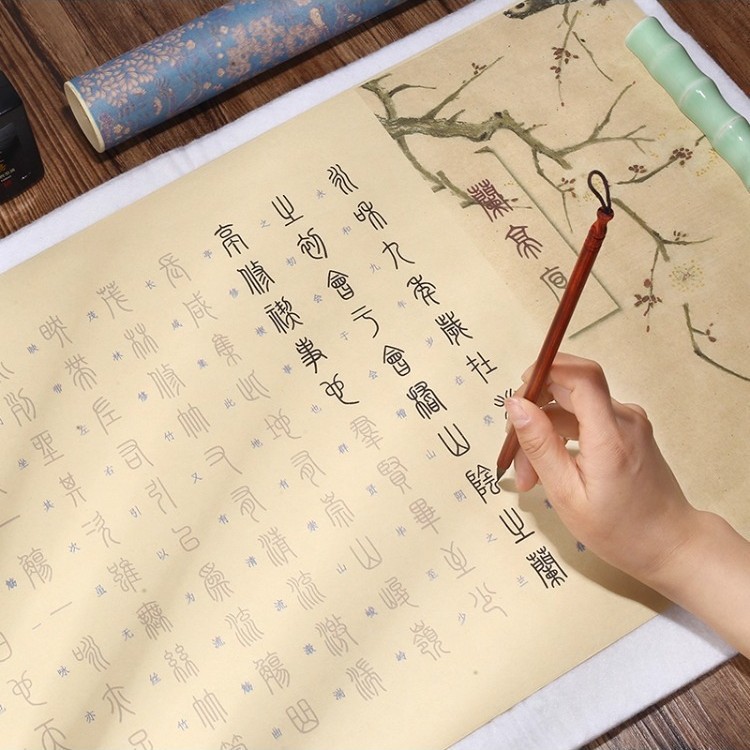 蘭亭序
永和九年歲在
永和九年岁在癸
春
之初會于會稽山陰之蘭
之初会于会稽山阴之兰
亭修禊事也群賢畢至少
亭修禊事也群贤毕至少
長咸集此地有崇山峻嶺
长咸集此地有崇山峻岭
茂林修竹又有清流激湍
茂林修竹又有清流激湍
映帶左右引以為流觴曲
映带左右引以为流觞曲
列坐其次雖無絲竹
坐其次虽无丝竹
一觴一詠亦
觞一咏亦